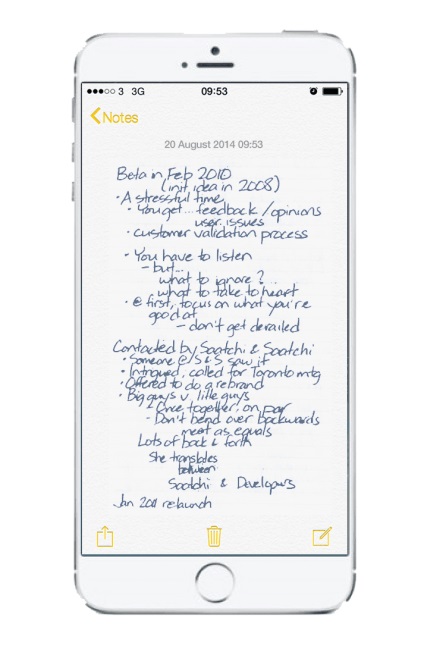 3 3G 09:53
Notes
20 August 2014 09:53
Beta in Feb 2010
(init idea in 2008)
• A stressful time
• You get... feedback/opinions
user issues
• customer validation process
• You have to listen
- but...
what to ignore?..
what to take to heart
• @ first, focus on what you're
good at
- don't get derailed
Contacted by Saatchi & Saatchi
• Someone @ S & S saw it
• Intrigued, called for Toronto mtg
• Offered to do a rebrand
• Big guys v. little guys
- Once together, on par
- Don't bend over backwards
meet as equals
Lots of back & forth
She translates
between
Saatchi & Developers
Jan 2011 relaunch